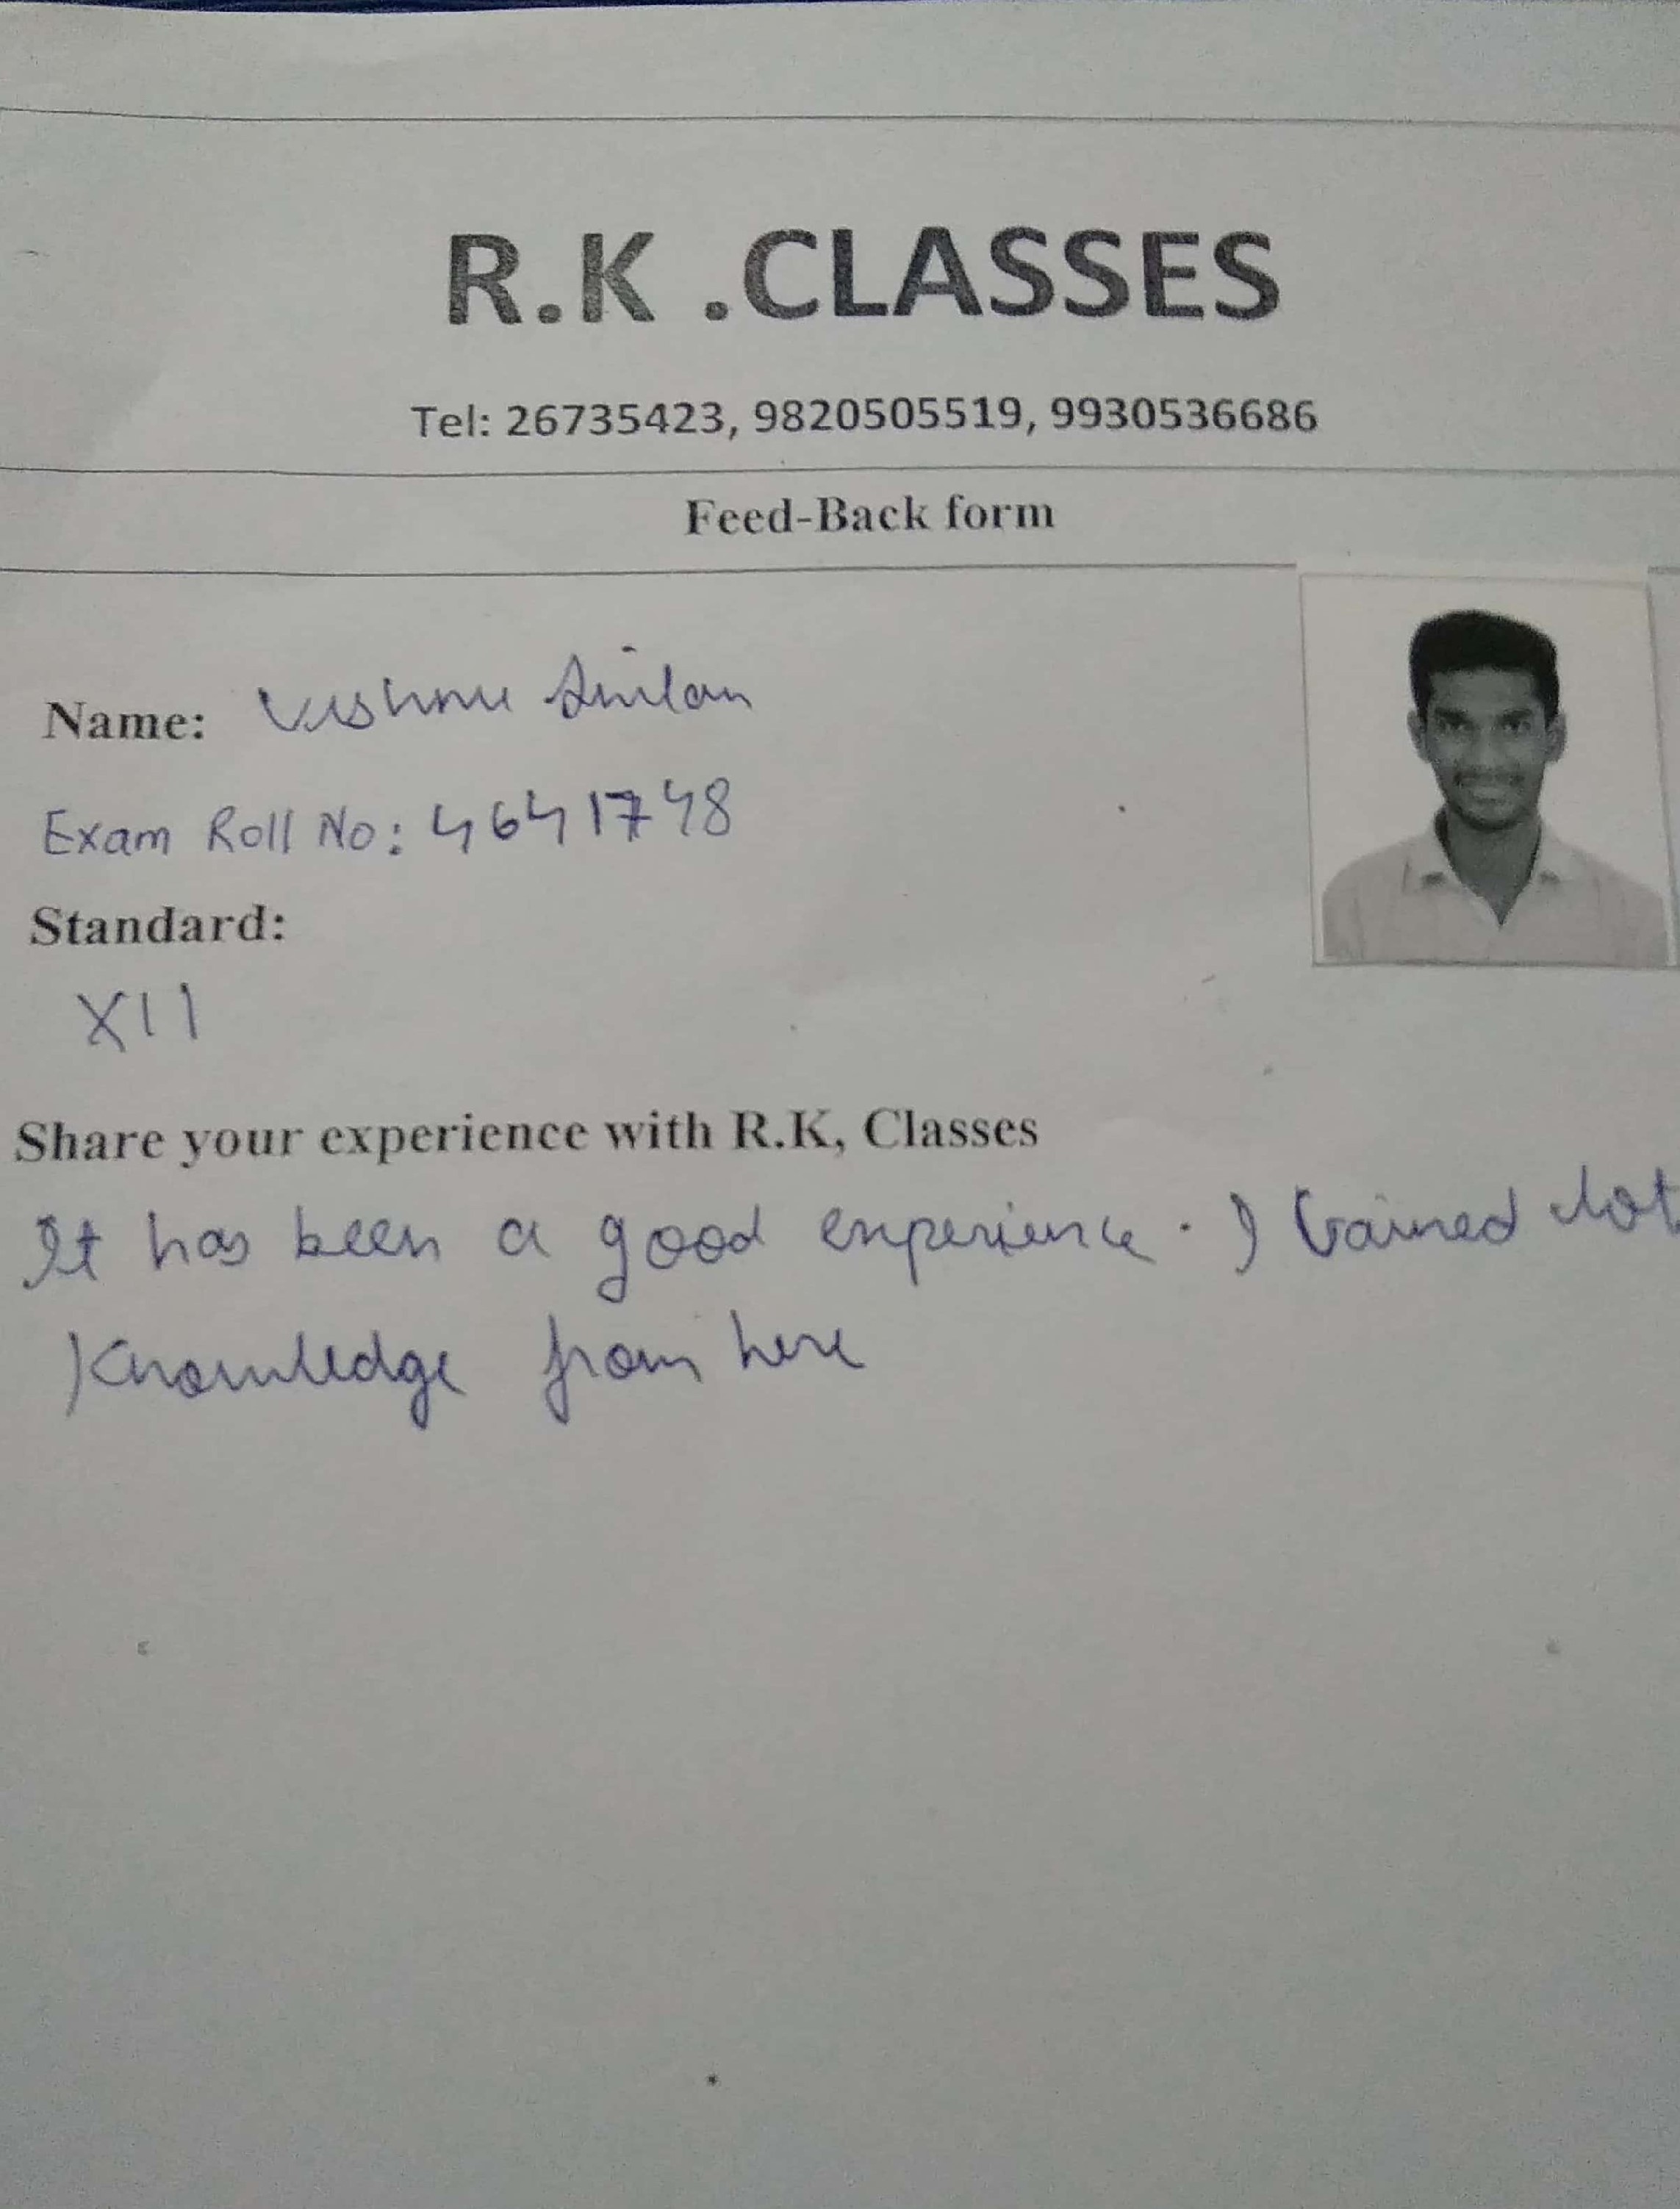 R.K .CLASSES
Tel: 26735423, 9820505519, 9930536686
Feed-Back form
Name: Vishnu
Exam Roll No: 4641748
Standard:
XII
Share your experience with R.K, Classes
It has been a good experience. I Gained lot
Knowledge from here